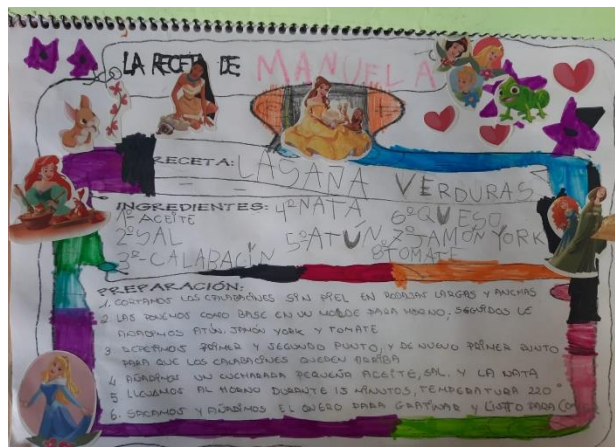 LA RECETA DE MANUELA
RECETA: LASAÑA VERDURAS
INGREDIENTES: 4º NATA 6º QUESO
1º ACEITE
2º SAL 5º ATÚN 7º JAMÓN YORK
3º- CALABACÍN 8º TOMATE
PREPARACIÓN:
1. CORTAMOS LOS CALABACINES SIN PIEL EN RODAJAS LARGAS Y ANCHAS
2 LAS PONEMOS COMO BASE EN UN MOLDE PARA HORNO, SEGUIDOS LE
AÑADIMOS ATÚN, JAMÓN YORK Y TOMATE
3 REPETIMOS PRIMER Y SEGUNDO PUNTO, Y DE NUEVO PRIMER PUNTO
PARA QUE LOS CALABACINES QUEDEN ARRIBA
4 AÑADIMOS UN CUCHARADA PEQUEÑA ACEITE, SAL, Y LA NATA
5 LLEVAMOS AL HORNO DURANTE 15 MINUTOS, TEMPERATURA 220º
6. SACAMOS Y AÑADIMOS EL PARA GRATINAR Y LISTO PARA